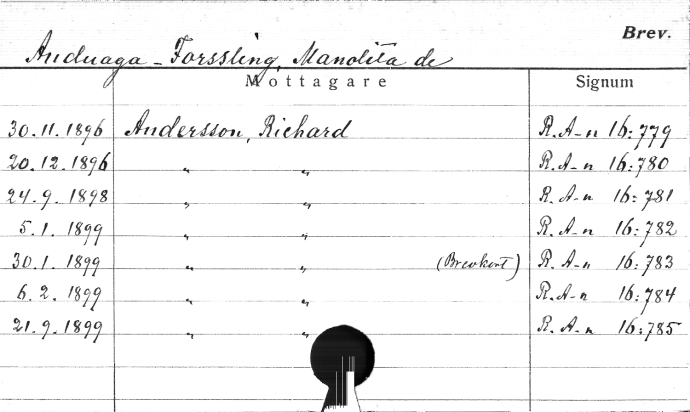 Brev.
Anduaga - Forssling, Manolita de
Mottagare Signum
30.11.1896 Andersson, Richard R. A-n 16:779
20.12.1896 " " R. A-n 16:780
24.9.1898 " " R. A-n 16:781
5.1.1899 " " R. A-n 16:782
30.1.1899 " " (Brevkort) R. A-n 16:783
6.2.1899 " " R. A-n 16:784
21.9.1899 " " R. A-n 16:785